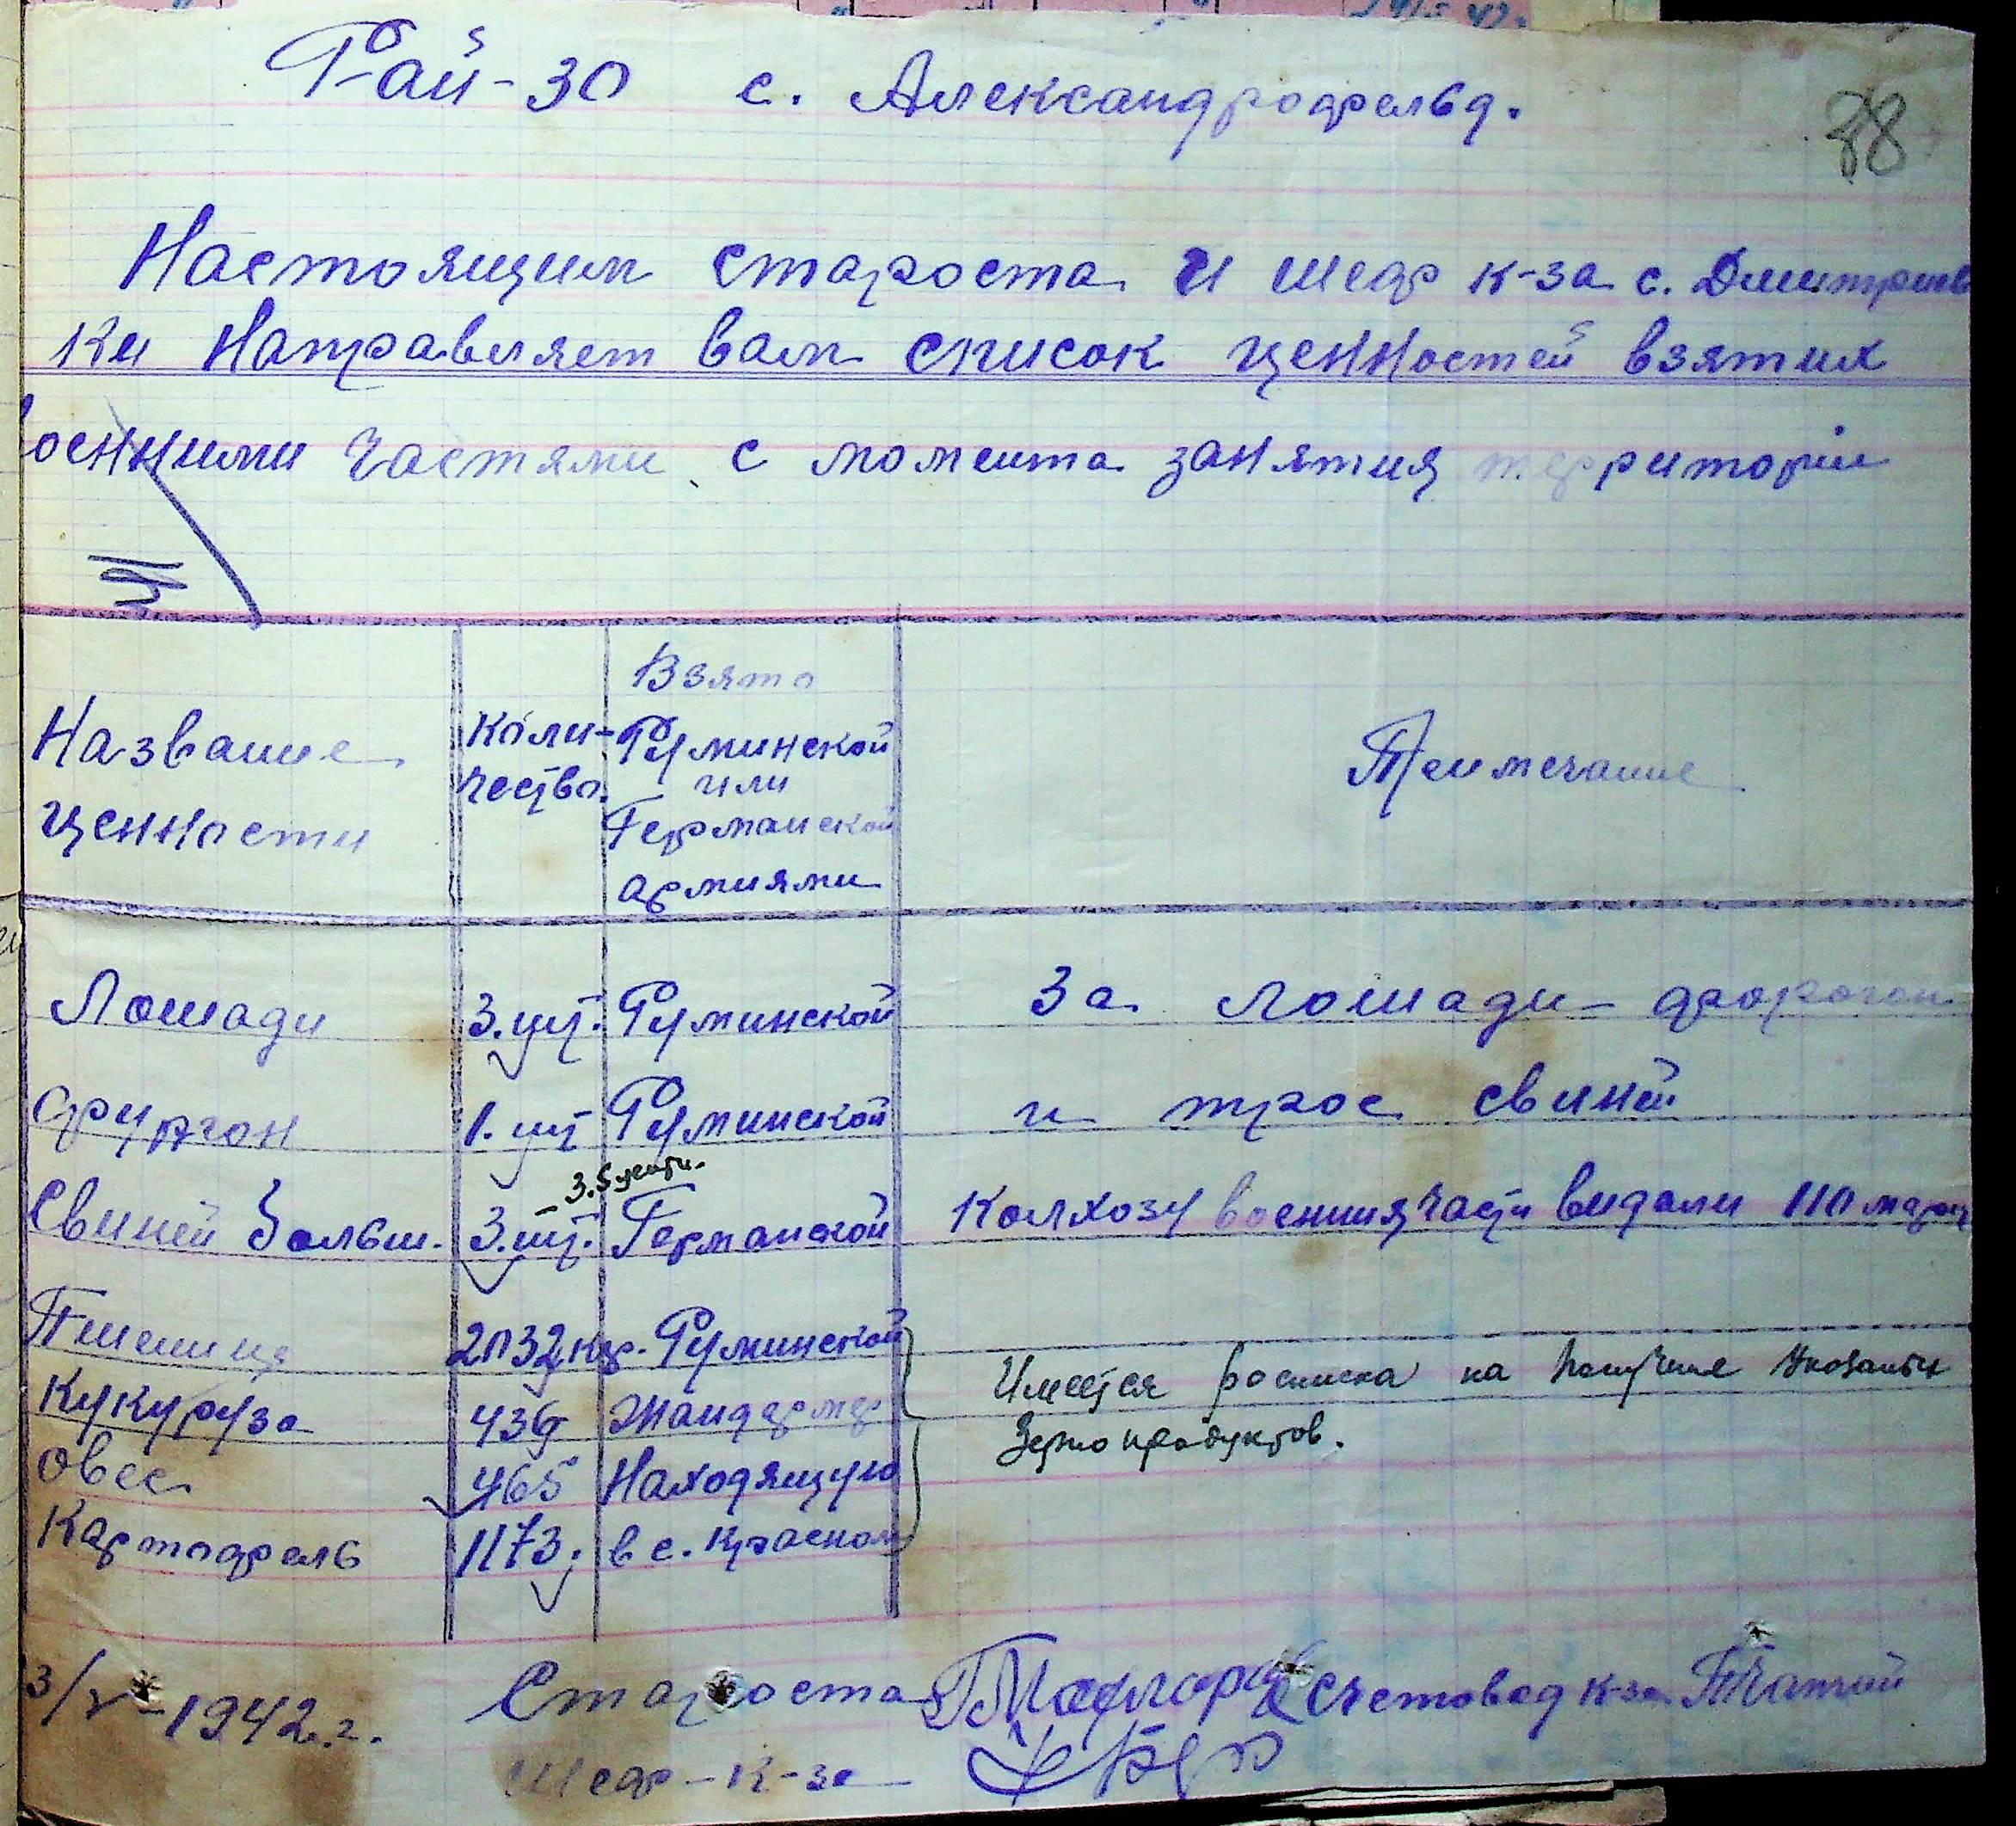 Рай-ЗО с. Александрофельд.
38
Настоящим староста и шеф к-за с. Дмитриев
ки направляет вам список ценностей взятих
военними частями с момента занятия територіи
Название ценности
Коли-чество.
Взято Руминской или Германской армиями
Примечание
Лошади 3.шт. Руминской За лошади - фургон
фургон 1.шт Руминской и трое свиней
3.5 центн.
Свиней больш. 3.шт. Германской Колхозу военния части видали 110 марок
Пшеница 2032 кгр. Руминской
Кукуруза 439 жандарм Имеется росписка на получение указаных
Овес 465 Находящую зерно продуктов.
Картофель 1173. в с. Красном
3/V-1942.г. Староста Счетовод к-за
Шеф-К-за